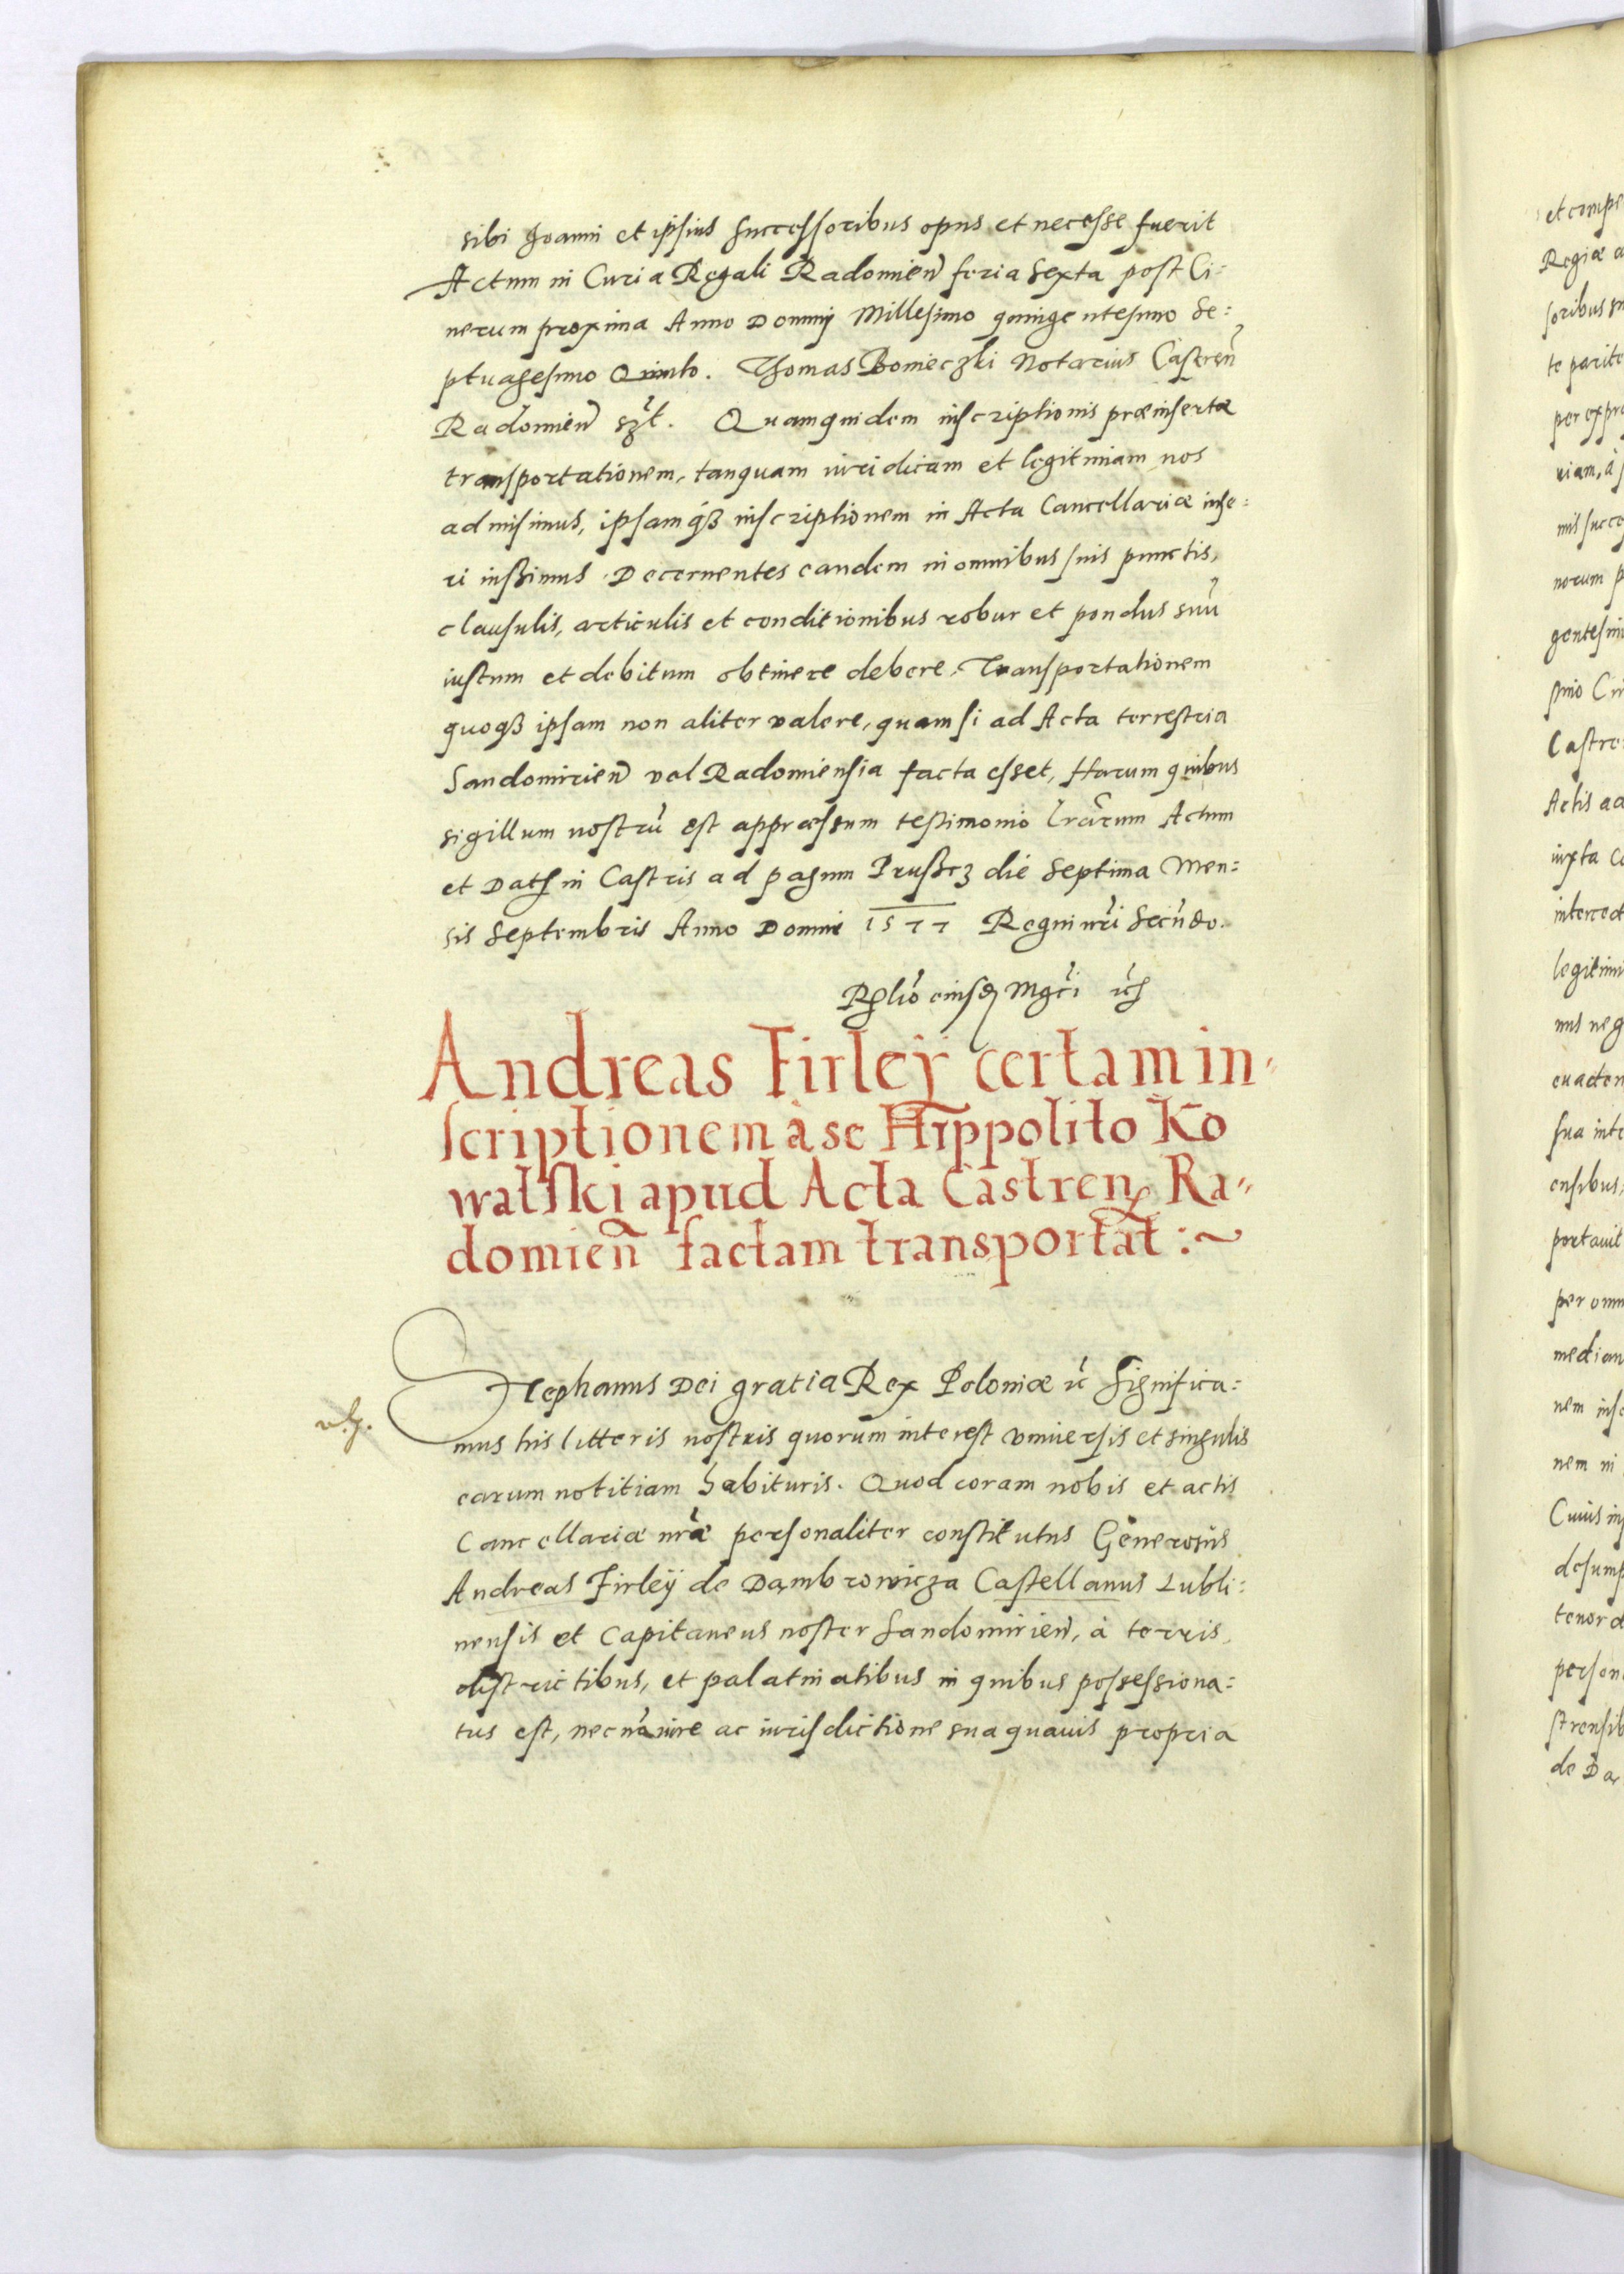 sibi Joanni et ipsius successoribus opus et necesse fuerit
Actum in Curia Regali Radomien̄ feria sexta post Ci:
nerum proxima Anno Dominj Millesimo quingentesimo se:
ptuagesimo Quinto. Thomas Bonieczki Notarius Castren̄
Radomien̄ szt. Quamquidem inscriptionis præinsertæ
transportationem, tanquam iuridicam et legitimam nos
admisimus, ipsamqꝫ inscriptionem in Acta Cancellariæ inse:
ri iussimus. Decernentes eandem in omnibus suis punctis,
clausulis, articulis et conditionibus robur et pondus suū
iustum et debitum obtinere debere, Transportationem
quoqꝫ ipsam non aliter valere, quam si ad Acta terrestria
Sandomirien̄ vel Radomiensia facta esset, Harum quibus
sigillum nostrū est appræssum testimonio l̄rarum Actum
et Dat in Castris ad pagum Prussez die Septima Men:
sis Septembris Anno Domini 1577 Regni nr̄i Secūdo.
Rlio eiusd Mgci
Andreas Firleÿ certam in-
scriptionem à se Hippolito Ko
walski apud Acta Castren Ra-
domien̄ factam transportat:~
Stephanus Dei gratia Rex Poloniæ ꝛc Significa:
mus his litteris nostris quorum interest vniuersis et singulis
earum notitiam habituris. Quod coram nobis et actis
Cancellariæ nr̄æ personaliter constitutus Generosus
Andreas Firleÿ de Dambrowicza Castellanus Lubli:
nensis et Capitaneus noster Sandomirien̄, à terris,
districtibus, et palatinatibus in quibus possessiona:
tus est, necnō iure ac iurisdictione sua quauis propria
et compe
Regiæ a
soribus su
te parite
per expre
riam, à
mis succe
norum p
gentesim
simo
Castre
Actis ad
iuxta
interced
legitim
mus neg
euacten
sua inte
ensibus,
portauit
per omn
median
nem insc
nem in
Cuius in
desump
tenor
person
strensib
de Da